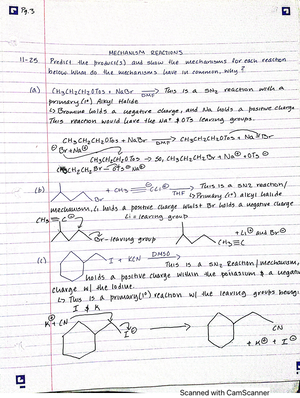 Pg. 3
MECHANISM REACTIONS
11-25. Predict the product(s) and show the mechanisms for each reaction
below. What do the mechanisms have in common, why?
(a) CH3CH2CH2OTos + NaBr → DMF This is a SN2 reaction with a
primary (1°) Alkyl Halide
↳ Bromine holds a negative charge, and Na holds a positive charge.
This reaction would have the Na⊕ & OTs leaving groups.
CH3CH2CH2OTos + NaBr → DMF CH3CH2CH2OTos + Na Br
⊖Br + Na⊕
CH3CH2CH2OTos → So, CH3CH2CH2Br + Na⊕ + OTs⊖
CH3CH2CH2 Br — OTs⊖ Na⊕
(b) Br + CH3 C⊖Li⊕ → THF This is a SN2 reaction/
↳ Primary (1°) alkyl halide
mechanism, Li holds a positive charge whilst Br holds a negative charge
CH3≡C⊖ Li = leaving group
Br - leaving group + Li⊕ and Br⊖
C≡CH
(c) I + KCN → DMSO This is a SN2 Reaction/mechanism,
holds a positive charge within the potassium & a negative
charge w/ the Iodine.
↳ This is a primary (1°) reaction w/ the leaving groups being:
I & K
K + CN
I⊖ → CN
+ K⊕ + I⊖
Scanned with CamScanner